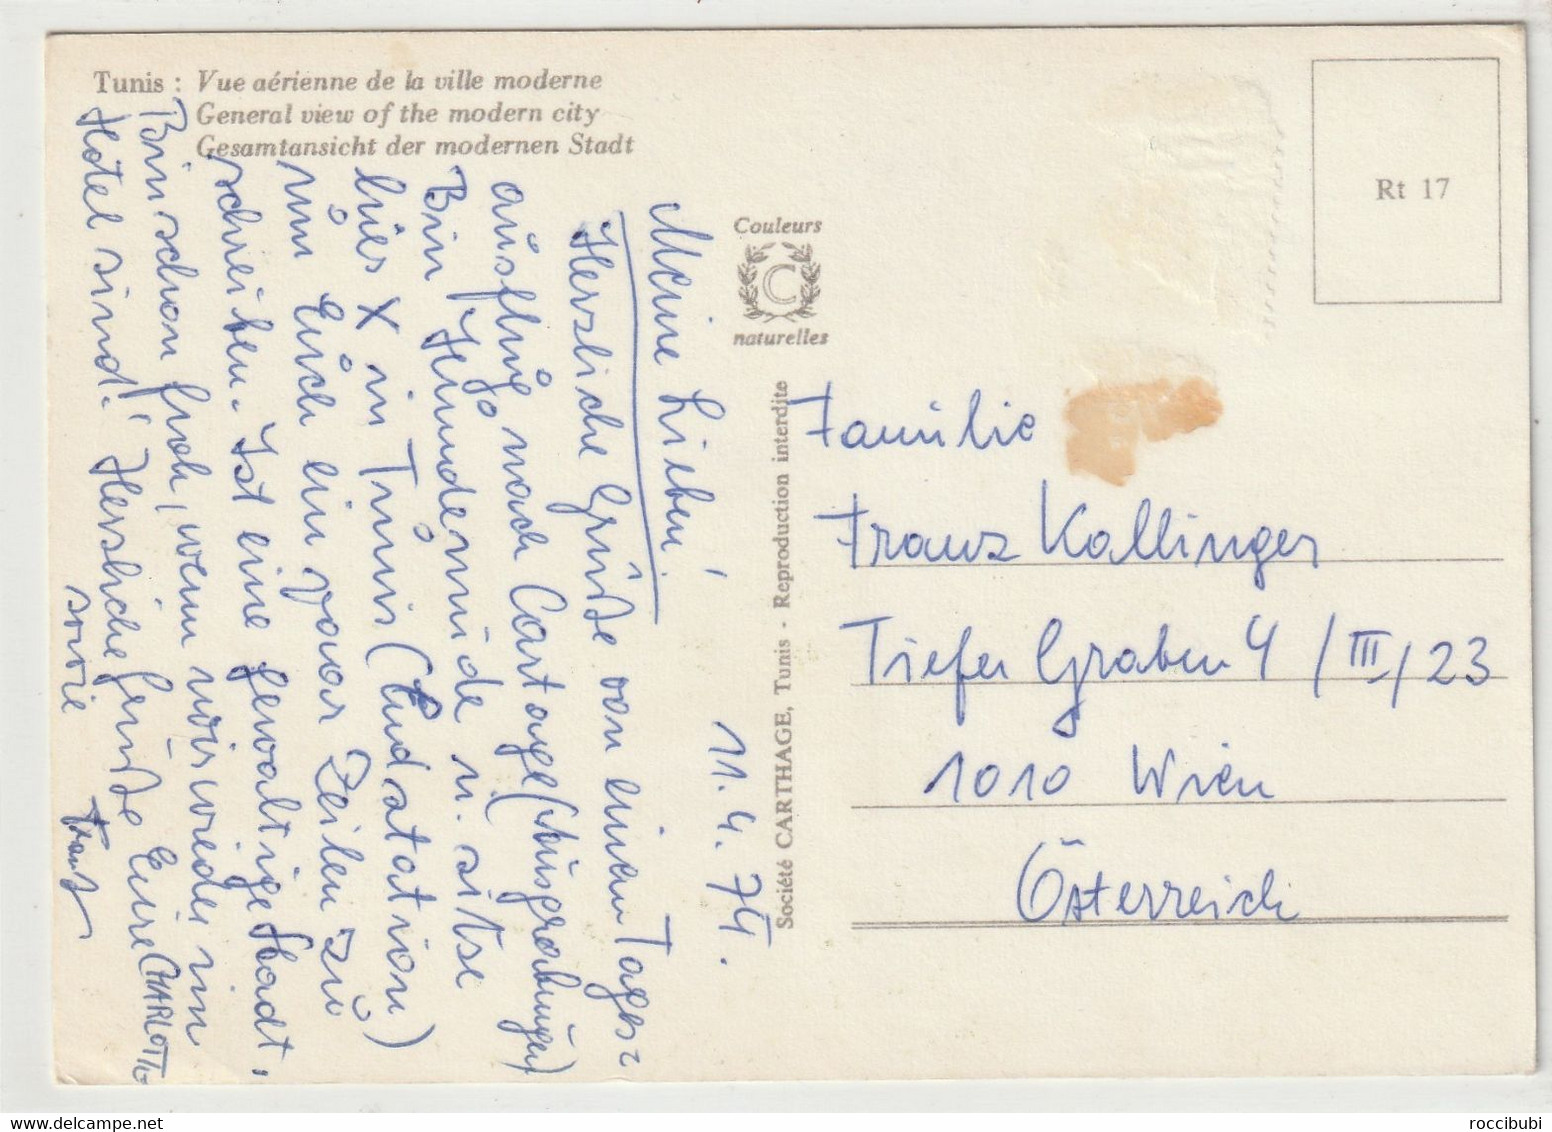 Tunis : Vue aérienne de la ville moderne
General view of the modern city
Gesamtansicht der modernen Stadt
11.4.74.
Meine Lieben!
Herzliche Grüße von einem Tages=
ausflug nach Cartage (Ausgrabungen)
Bin Hundemüde u. sitze
hier X in Tunis (Endstation)
um Euch ein paar Zeilen zu
schreiben. Ist eine gewaltige Stadt,
Bin schon froh, wenn wir wieder im
Hotel sind! Herzliche Grüße Eure CHARLOTTE
sowie Franz
Couleurs
C
naturelles
Société CARTHAGE, Tunis - Reproduction interdite
Rt 17
Familie
Franz Kollinger
Tiefer Graben 4 / III / 23
1010 Wien
Österreich
roccibubi
www.delcampe.net